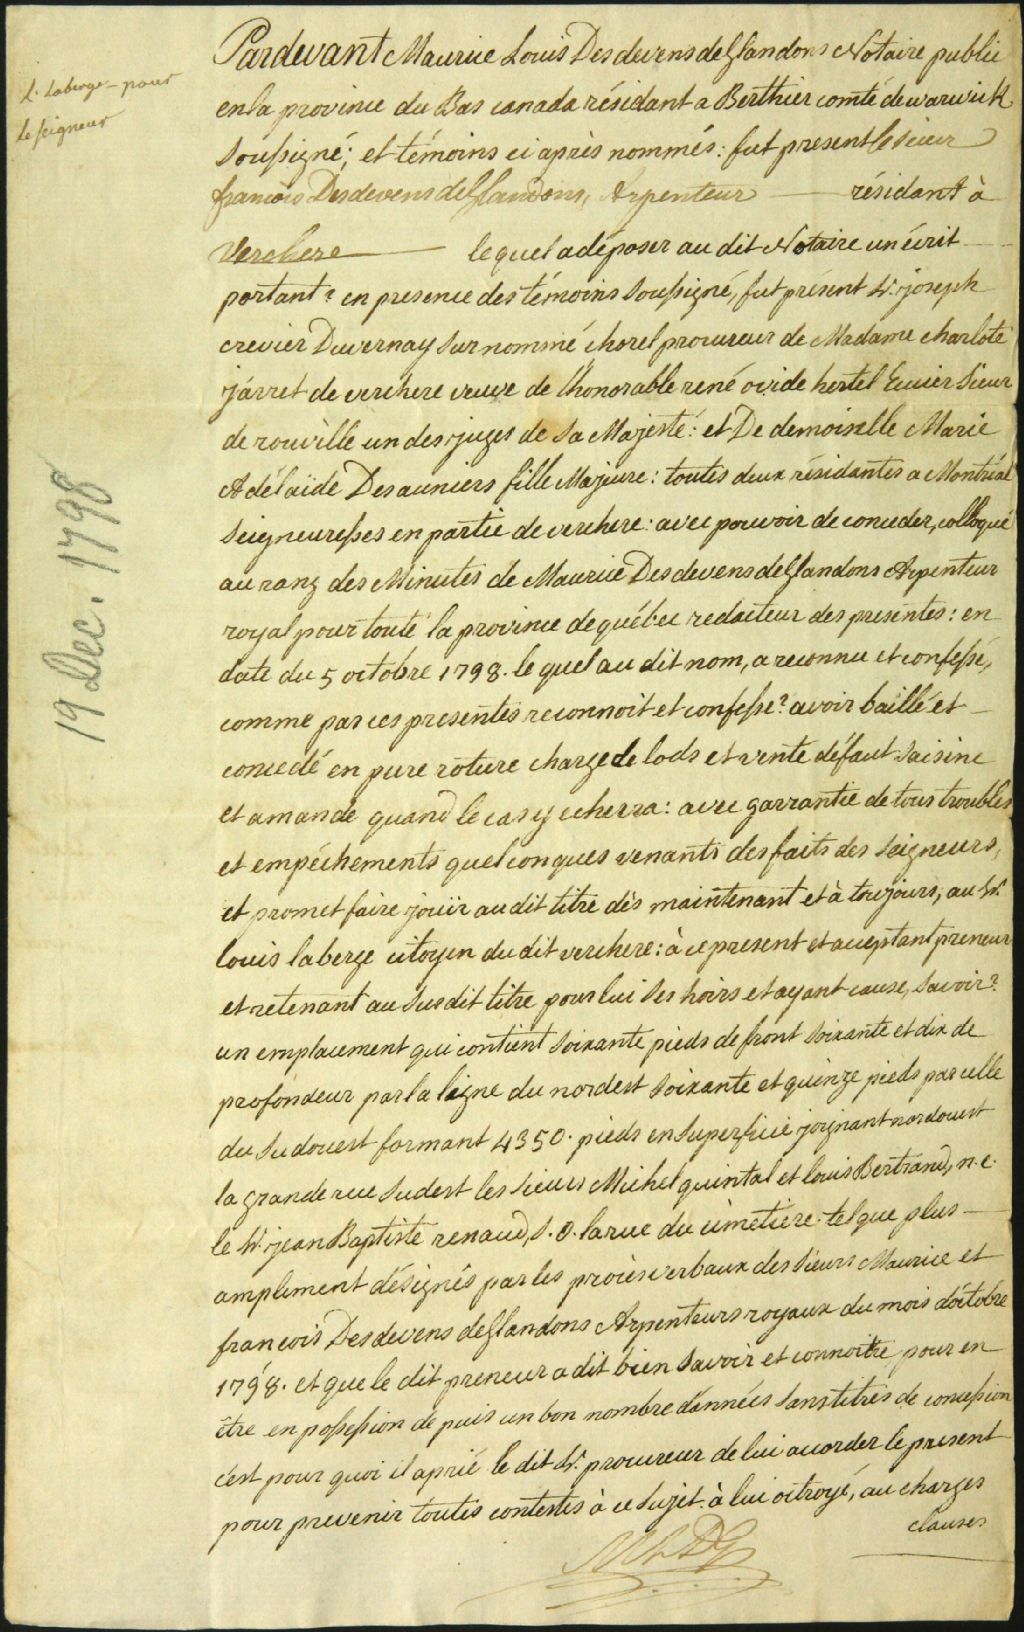 L. Laberge – pour
le seigneur
19 Dec. 1798
Pardevant Maurice Louis Desdevens de Glandons Notaire public
en la province du Bas canada résidant a Berthier comté de warwick
soussigné; et témoins ci après nommés: fut present le sieur
françois Desdevens de Glandons, Arpenteur — résidant à
Verchere — le quel a déposer au dit Notaire un écrit
portant: en presence des témoins soussigné, fut présent Sr. joseph
crevier Duvernay surnommé chorel procureur de Madame charlote
járret de verchere veuve de lhonorable rené ovide hertel Ecuier Sieur
de rouville un des juges de Sa Majesté: et De demoiselle Marie
Adélaïde Desauniers fille Majeure: toutes deux résidantes a Montréal
seigneuresses en partie de verchere: avec pouvoir de conceder, colloqué
au rang des Minutes de Maurice Desdevens de Glandons Arpenteur
royal pour toute la province de québec redacteur des presentes: en
date du 5 octobre 1798. le quel au dit nom, a reconnu et confessé,
comme par ces presentes reconnoit et confesse: avoir baillé et
concedé en pure roture charge de lods et vente défaut saisine
et amande quand le cas y echerra: avec garrantie de tous troubles
et empéchements quelconques venants des faits des seigneurs,
et promet faire jouïr au dit titre dès maintenant et à toujours, au Sr.
louis laberge citoyen du dit verchere: à ce present et aceptant preneur
et retenant au sus dit titre pour lui ses hoirs et ayant cause, savoir:
un emplacement qui contient soixante pieds de front soixante et dix de
profondeur par la ligne du nordest soixante et quinze pieds par celle
du sudouest formant 4350. pieds en superficie joignant nordouest
la grande rue sudest les sieurs Michel quintal et louis Bertrand, n. e.
le Sr. jean Baptiste renaud, S. O. la rue du cimetiere. tel que plus
amplement désignés par les procès verbaux des sieurs Maurice et
françois Desdevens de Glandons Arpenteurs royaux du mois d'octobre
1798. et que le dit preneur a dit bien savoir et connoitre pour en
être en possession de puis un bon nombre dánnées sans titres de concession
c'est pour quoi il a prié le dit Sr. procureur de lui accorder le present
pour prevenir toutes contestes à ce sujet. à lui octroyé, au charges
clauses